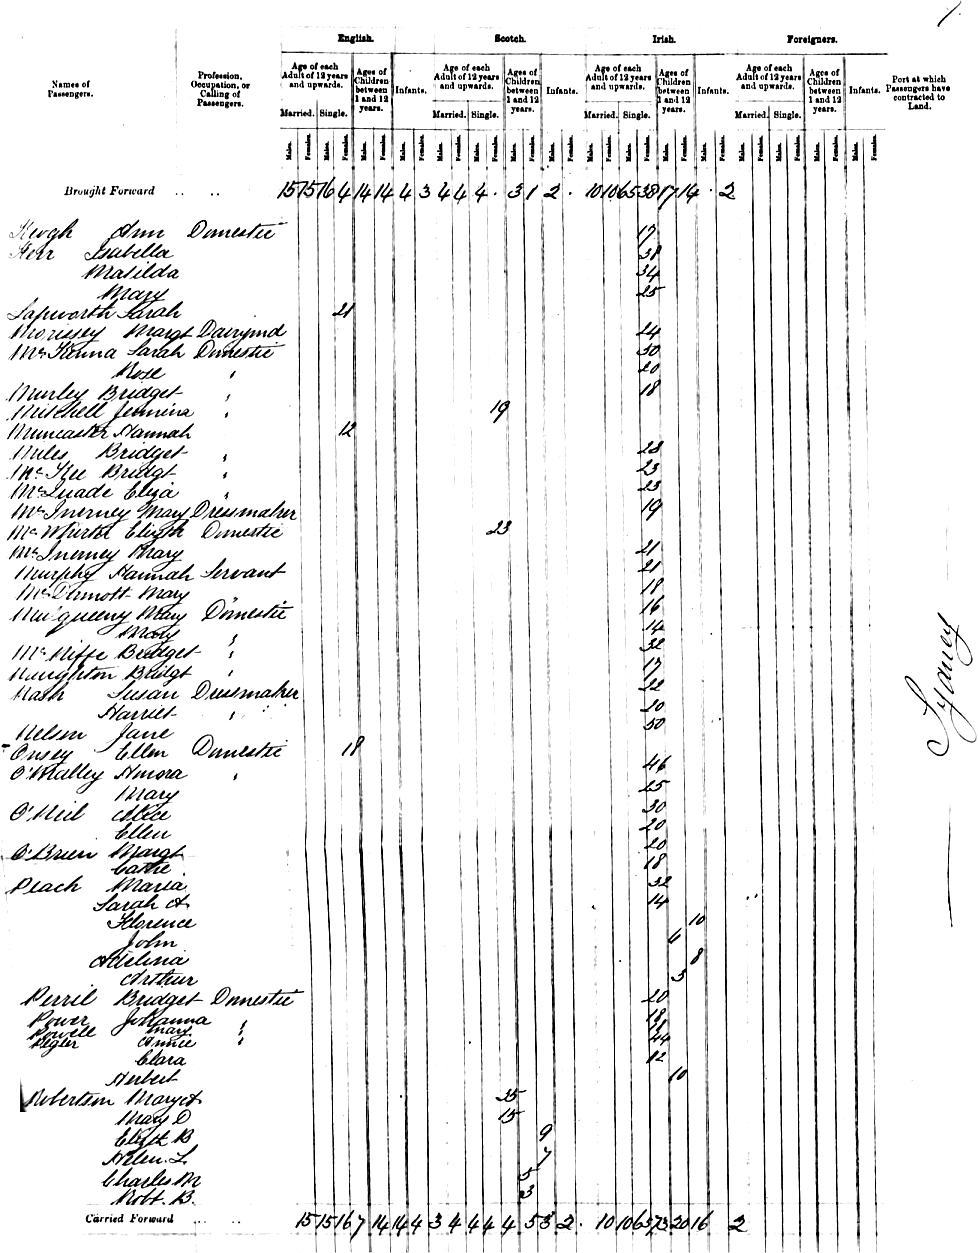 1
English. Scotch. Irish. Foreigners.
Names of Passengers. Profession, Occupation, or Calling of Passengers. Age of each Adult of 12 years and upwards. Ages of Children between 1 and 12 years. Infants. Age of each Adult of 12 years and upwards. Ages of Children between 1 and 12 years. Infants. Age of each Adult of 12 years and upwards. Ages of Children between 1 and 12 years. Infants. Age of each Adult of 12 years and upwards. Ages of Children between 1 and 12 years. Infants. Port at which Passengers have contracted to Land.
Married. Single. Married. Single. Married. Single. Married. Single.
Males. Females. Males. Females. Males. Females. Males. Females. Males. Females. Males. Females. Males. Females. Males. Females. Males. Females. Males. Females. Males. Females. Males. Females. Males. Females. Males. Females. Males. Females. Males. Females.
Brought Forward .. .. 15 15 16 4 14 14 4 3 4 4 4 . 3 1 2 . 10 10 65 38 17 14 . 2
Keogh Ann Domestic 17
Kerr Isabella 38
Matilda 34
Mary 25
Sapworth Sarah 21
Morissey Margt Dairymd 24
McKenna Sarah Domestic 30
Rose " 20
Murley Bridget " 18
Mitchell Jemima " 19
Muncaster Hannah 12
Miles Bridget " 28
McKee Bridgt " 23
McQuade Eliza " 23
McInerney Mary Dressmaker 19
Elizth Domestic 23
McInerney Mary 21
Murphy Hannah Servant 21
McDermott Mary " 18
Mulqueeny Mary Domestic 16
Mary " 14
McNiffe Bridget " 32
Naughton Bridgt " 17
Nash Susan Dressmaker 22
Harriet " 20
Nelson Jane 50
Ellen Domestic 18
O'Malley Honora " 46
Mary 25
O'Neil Alice 30
Ellen 20
O'Brien Margt 20
Cathe 18
Peach Maria 32
Sarah A. 14
Florence 10
John
Adelina 8
Arthur 3
Perril Bridget Domestic 20
Power Johanna " 18
Powell Mary "
Pegler Annie " 44
Clara 12
Herbert 10
Robertson Mary A. 35
Mary D 15
Elizth B 9
Helen L. 7
Charles M 5
Robt. B. 3
Carried Forward ... .. 15 15 16 7 14 14 4 3 4 4 4 4 5 3 2 . 10 10 65 73 20 16 2
Sydney